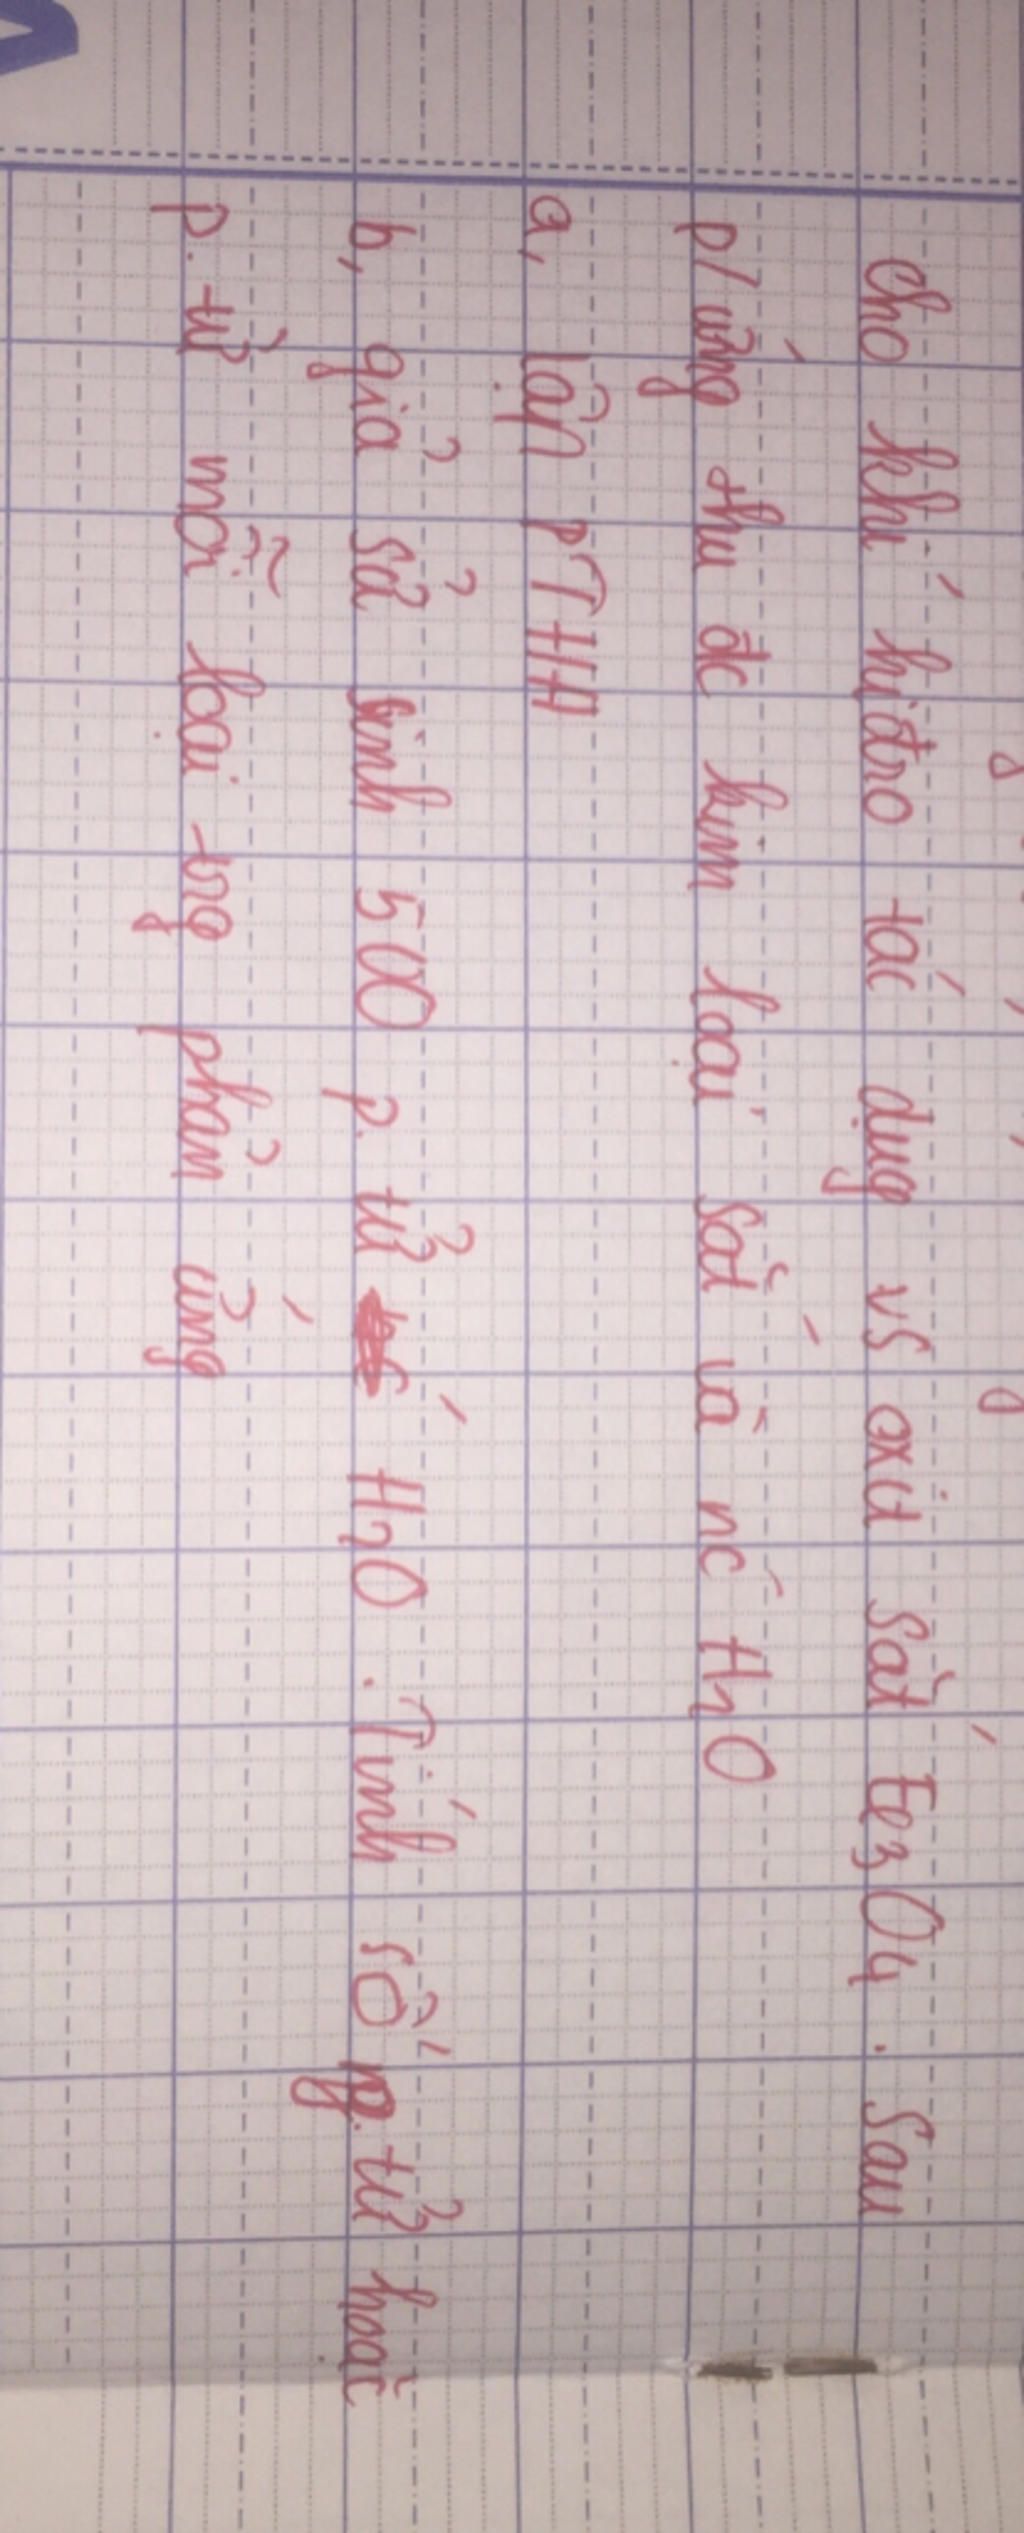 Cho khí hiđro tác dụg vs oxit sắt Fe3O4. Sau
p/ứng thu đc kim loại sắt và nc H2O
a, lập PTHH
b, giả sử sinh 500 p. tử H2O. Tính số p. tử hoặc
p. tử mỗi loại trg phản ứng